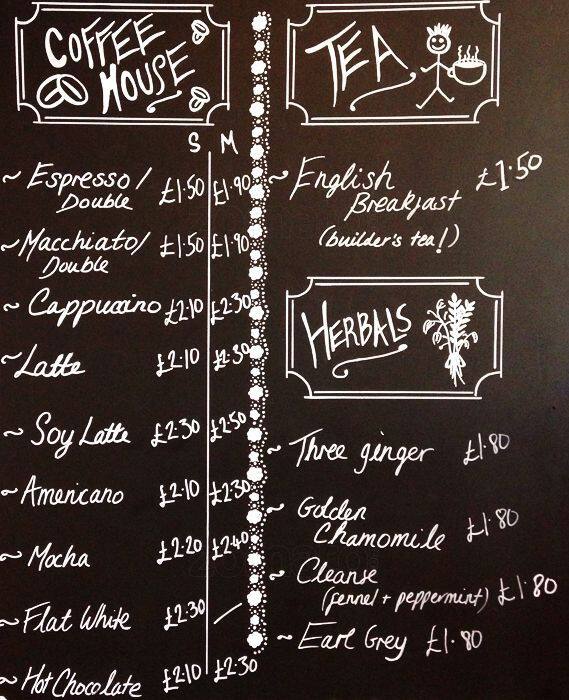 COFFEE
HOUSE
S M
~ Espresso/ £1.50 £1.90
Double
~ Macchiato/ £1.50 £1.90
Double
~ Cappuccino £2.10 £2.30
~ Latte £2.10 £2.30
~ Soy Latte £2.30 £2.50
~ Americano £2.10 £2.30
~ Mocha £2.20 £2.40
~ Flat White £2.30 —
~ Hot Chocolate £2.10 £2.30
TEA
~ English £1.50
Breakfast
(builder's tea!)
HERBALS
~ Three ginger £1.80
~ Golden
Chamomile £1.80
~ Cleanse
(fennel + peppermint) £1.80
~ Earl Grey £1.80